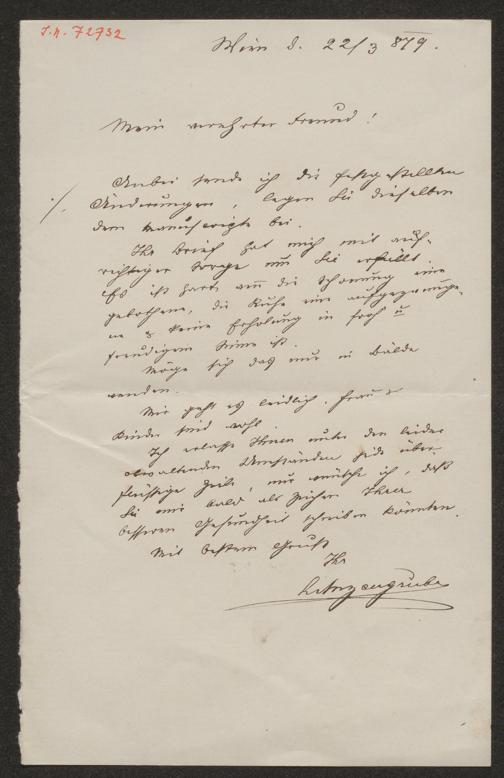 I.N. 72732
Wien d. 22/3 879.
Mein verehrter Freund!
Anbei sende ich die festgestellten
Änderungen, legen Sie dieselben
dem Manuscripte bei.
Ihr Brief hat mich mit auf-
richtiger Sorge um Sie erfüllt.
Es ist hart wenn die Schonung eine
gebothene, die Ruhe eine aufgezwunge-
ne & keine Erholung in froh u
freudigem Sinne ist.
Möge sich das nur in Bälde
wenden.
Mir geht es leidlich. Frau &
Kinder sind wohl.
Ich erlasse Ihnen unter den leider
obwaltenden Umständen jede über-
flüssige Zeile, nur wünsche ich, daß
Sie mir bald als Zeichen Ihrer
besseren Gesundheit schreiben könnten.
Mit bestem Gruß
Ihr
LAnzengruber